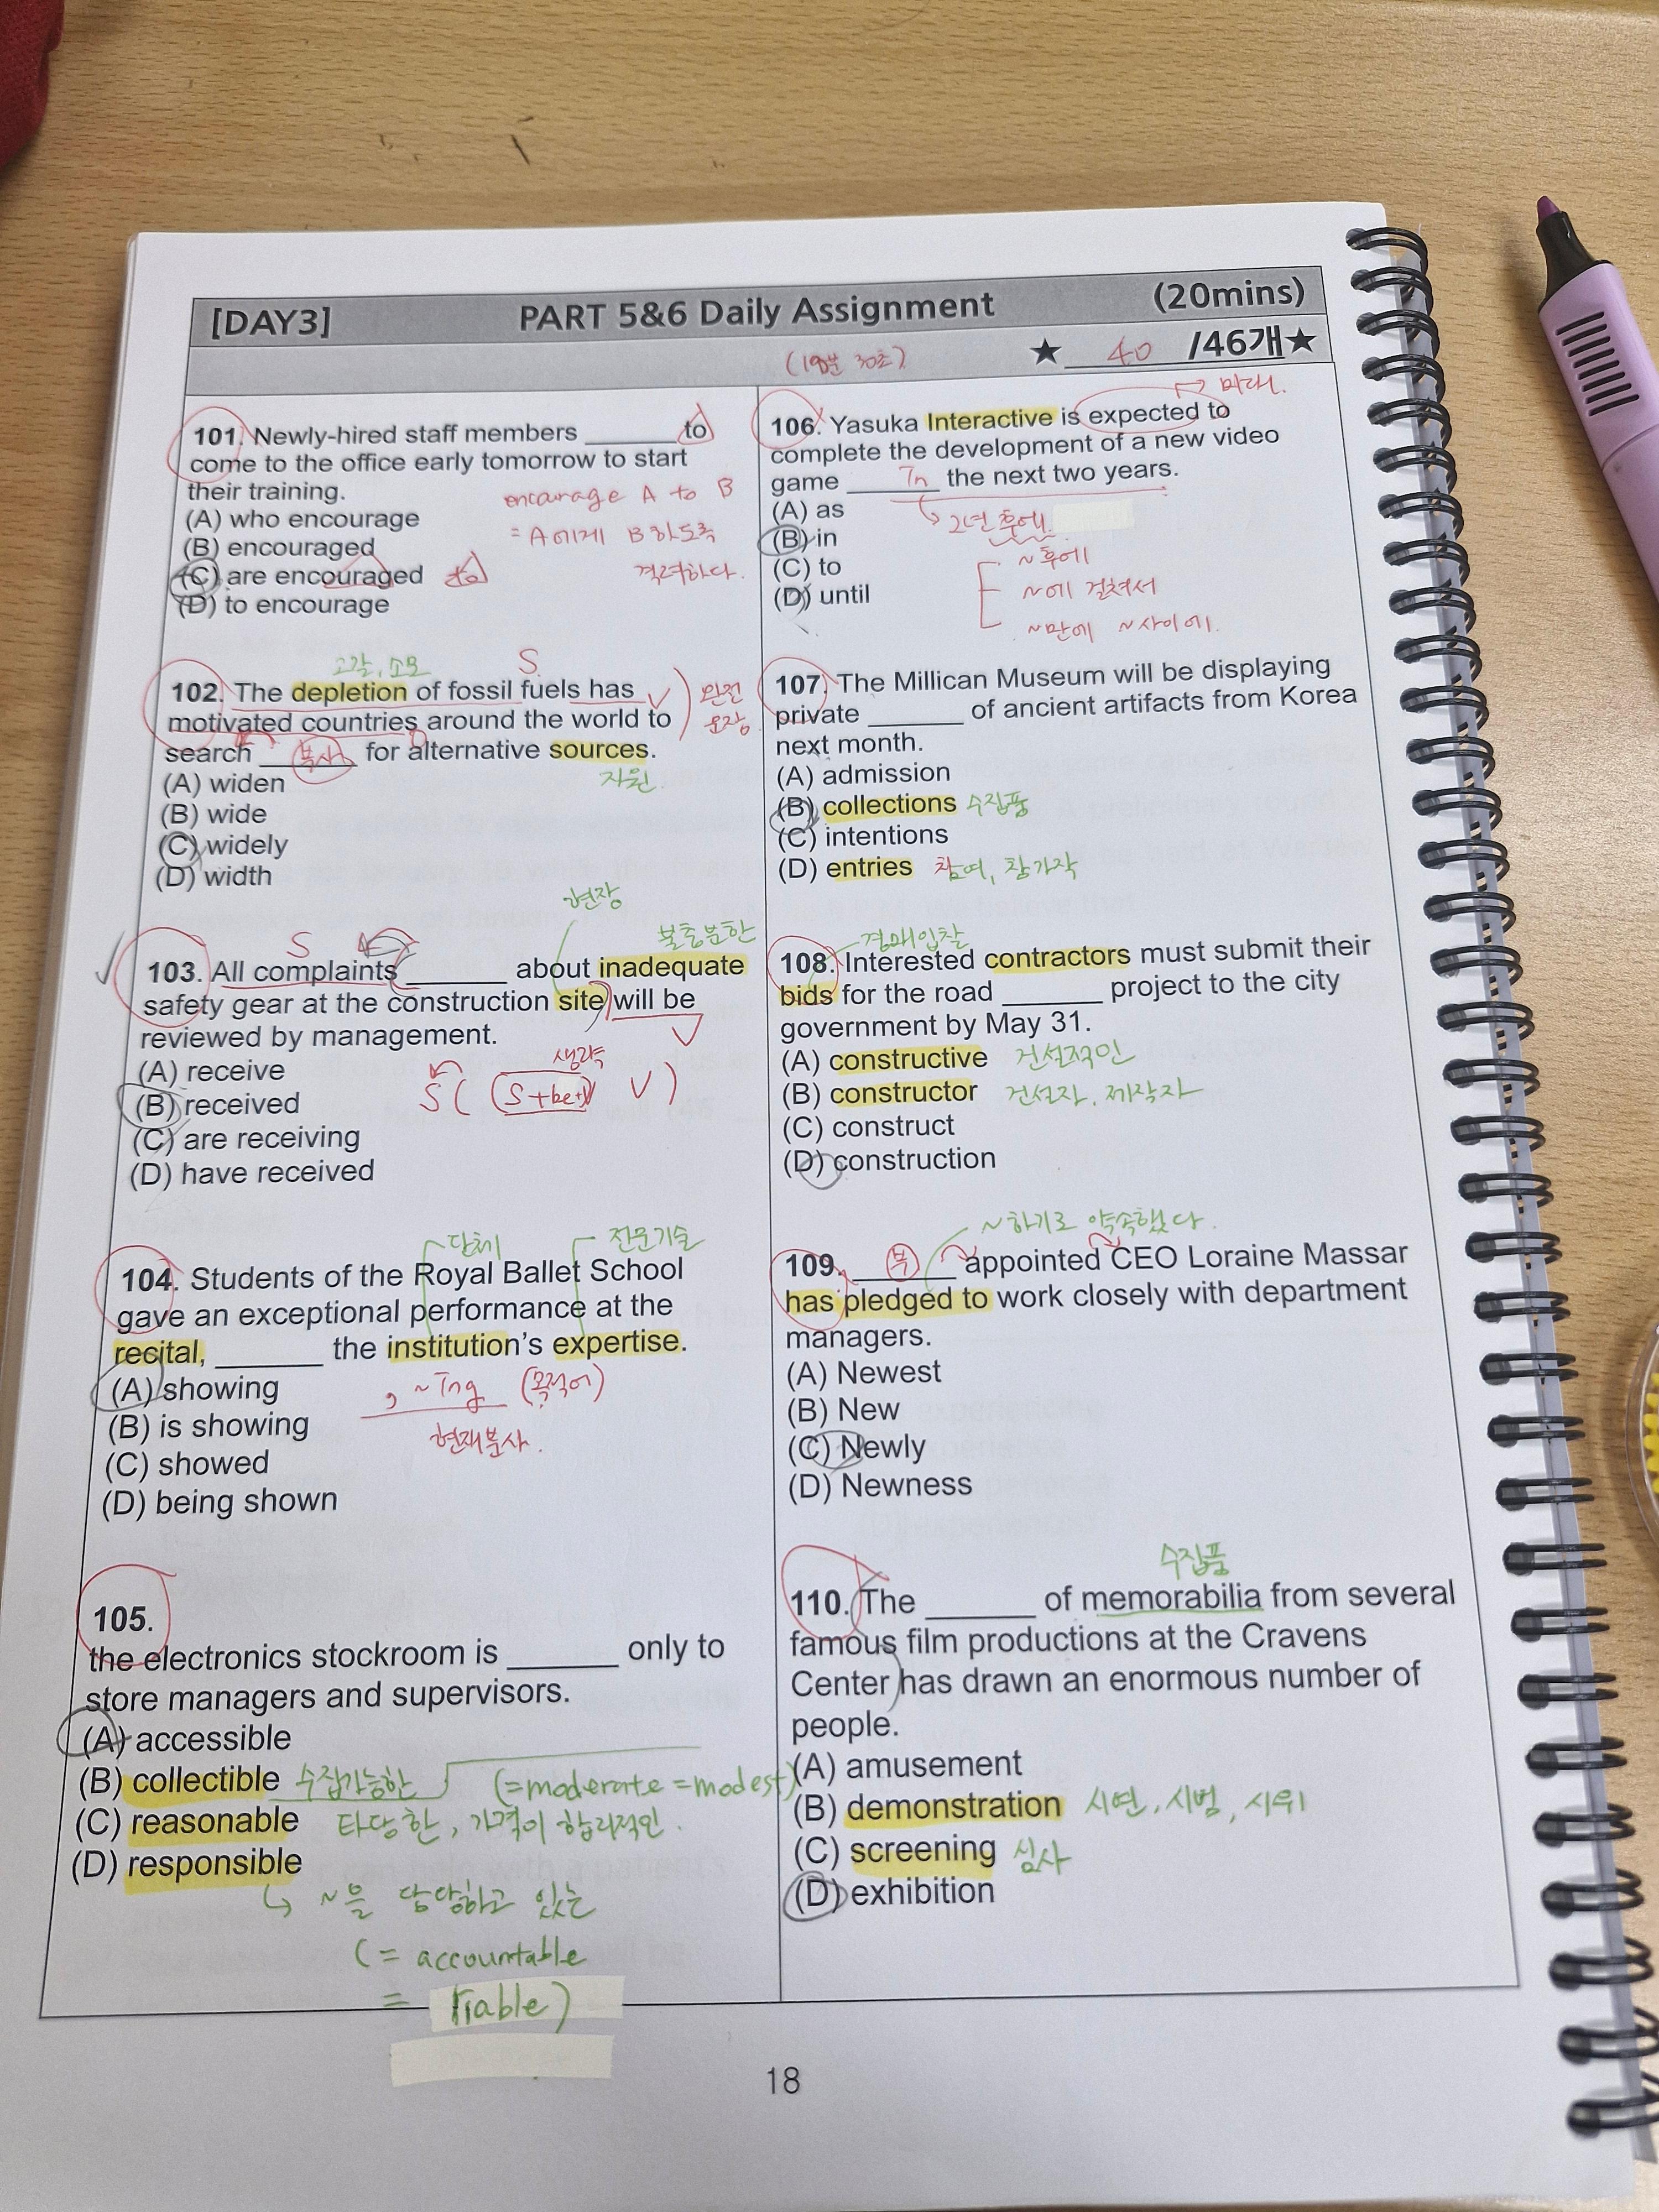 [DAY3] PART 5&6 Daily Assignment (20mins)
(19분 30초) ★ 40 /46개★
101. Newly-hired staff members ______ to
come to the office early tomorrow to start
their training.
encourage A to B
(A) who encourage
= A에게 B하도록
(B) encouraged
격려하다.
(C) are encouraged to
(D) to encourage
고갈, 소모 S
102. The depletion of fossil fuels has V
완전
motivated countries around the world to
문장
search 부사 for alternative sources.
자원
(A) widen
(B) wide
(C) widely
(D) width
현장
불충분한
S
103. All complaints ______ about inadequate
safety gear at the construction site will be
V
reviewed by management.
생략
(A) receive
S ( S+be동 V )
(B) received
(C) are receiving
(D) have received
단체 전문기술
104. Students of the Royal Ballet School
gave an exceptional performance at the
recital, ______ the institution's expertise.
(A) showing
, ~ing (목적어)
(B) is showing
현재분사.
(C) showed
(D) being shown
105.
the electronics stockroom is ______ only to
store managers and supervisors.
(A) accessible
(B) collectible 수집가능한 (=moderate =modest)
(C) reasonable 타당한, 가격이 합리적인.
(D) responsible
↳ ~을 담당하고 있는
(= accountable
= liable)
미래.
106. Yasuka Interactive is expected to
complete the development of a new video
game In the next two years.
(A) as
2년 후에.
(B) in
~후에
(C) to
~에 걸쳐서
(D) until
~만에 ~사이에.
107. The Millican Museum will be displaying
private ______ of ancient artifacts from Korea
next month.
(A) admission
(B) collections 수집품
(C) intentions
(D) entries 참여, 참가작
경매입찰
108. Interested contractors must submit their
bids for the road ______ project to the city
government by May 31.
(A) constructive 건설적인
(B) constructor 건설자, 제작자
(C) construct
(D) construction
~하기로 약속했다.
109. 부 appointed CEO Loraine Massar
has pledged to work closely with department
managers.
(A) Newest
(B) New
(C) Newly
(D) Newness
수집품
110. The ______ of memorabilia from several
famous film productions at the Cravens
Center has drawn an enormous number of
people.
(A) amusement
(B) demonstration 시연, 시범, 시위
(C) screening 심사
(D) exhibition
18